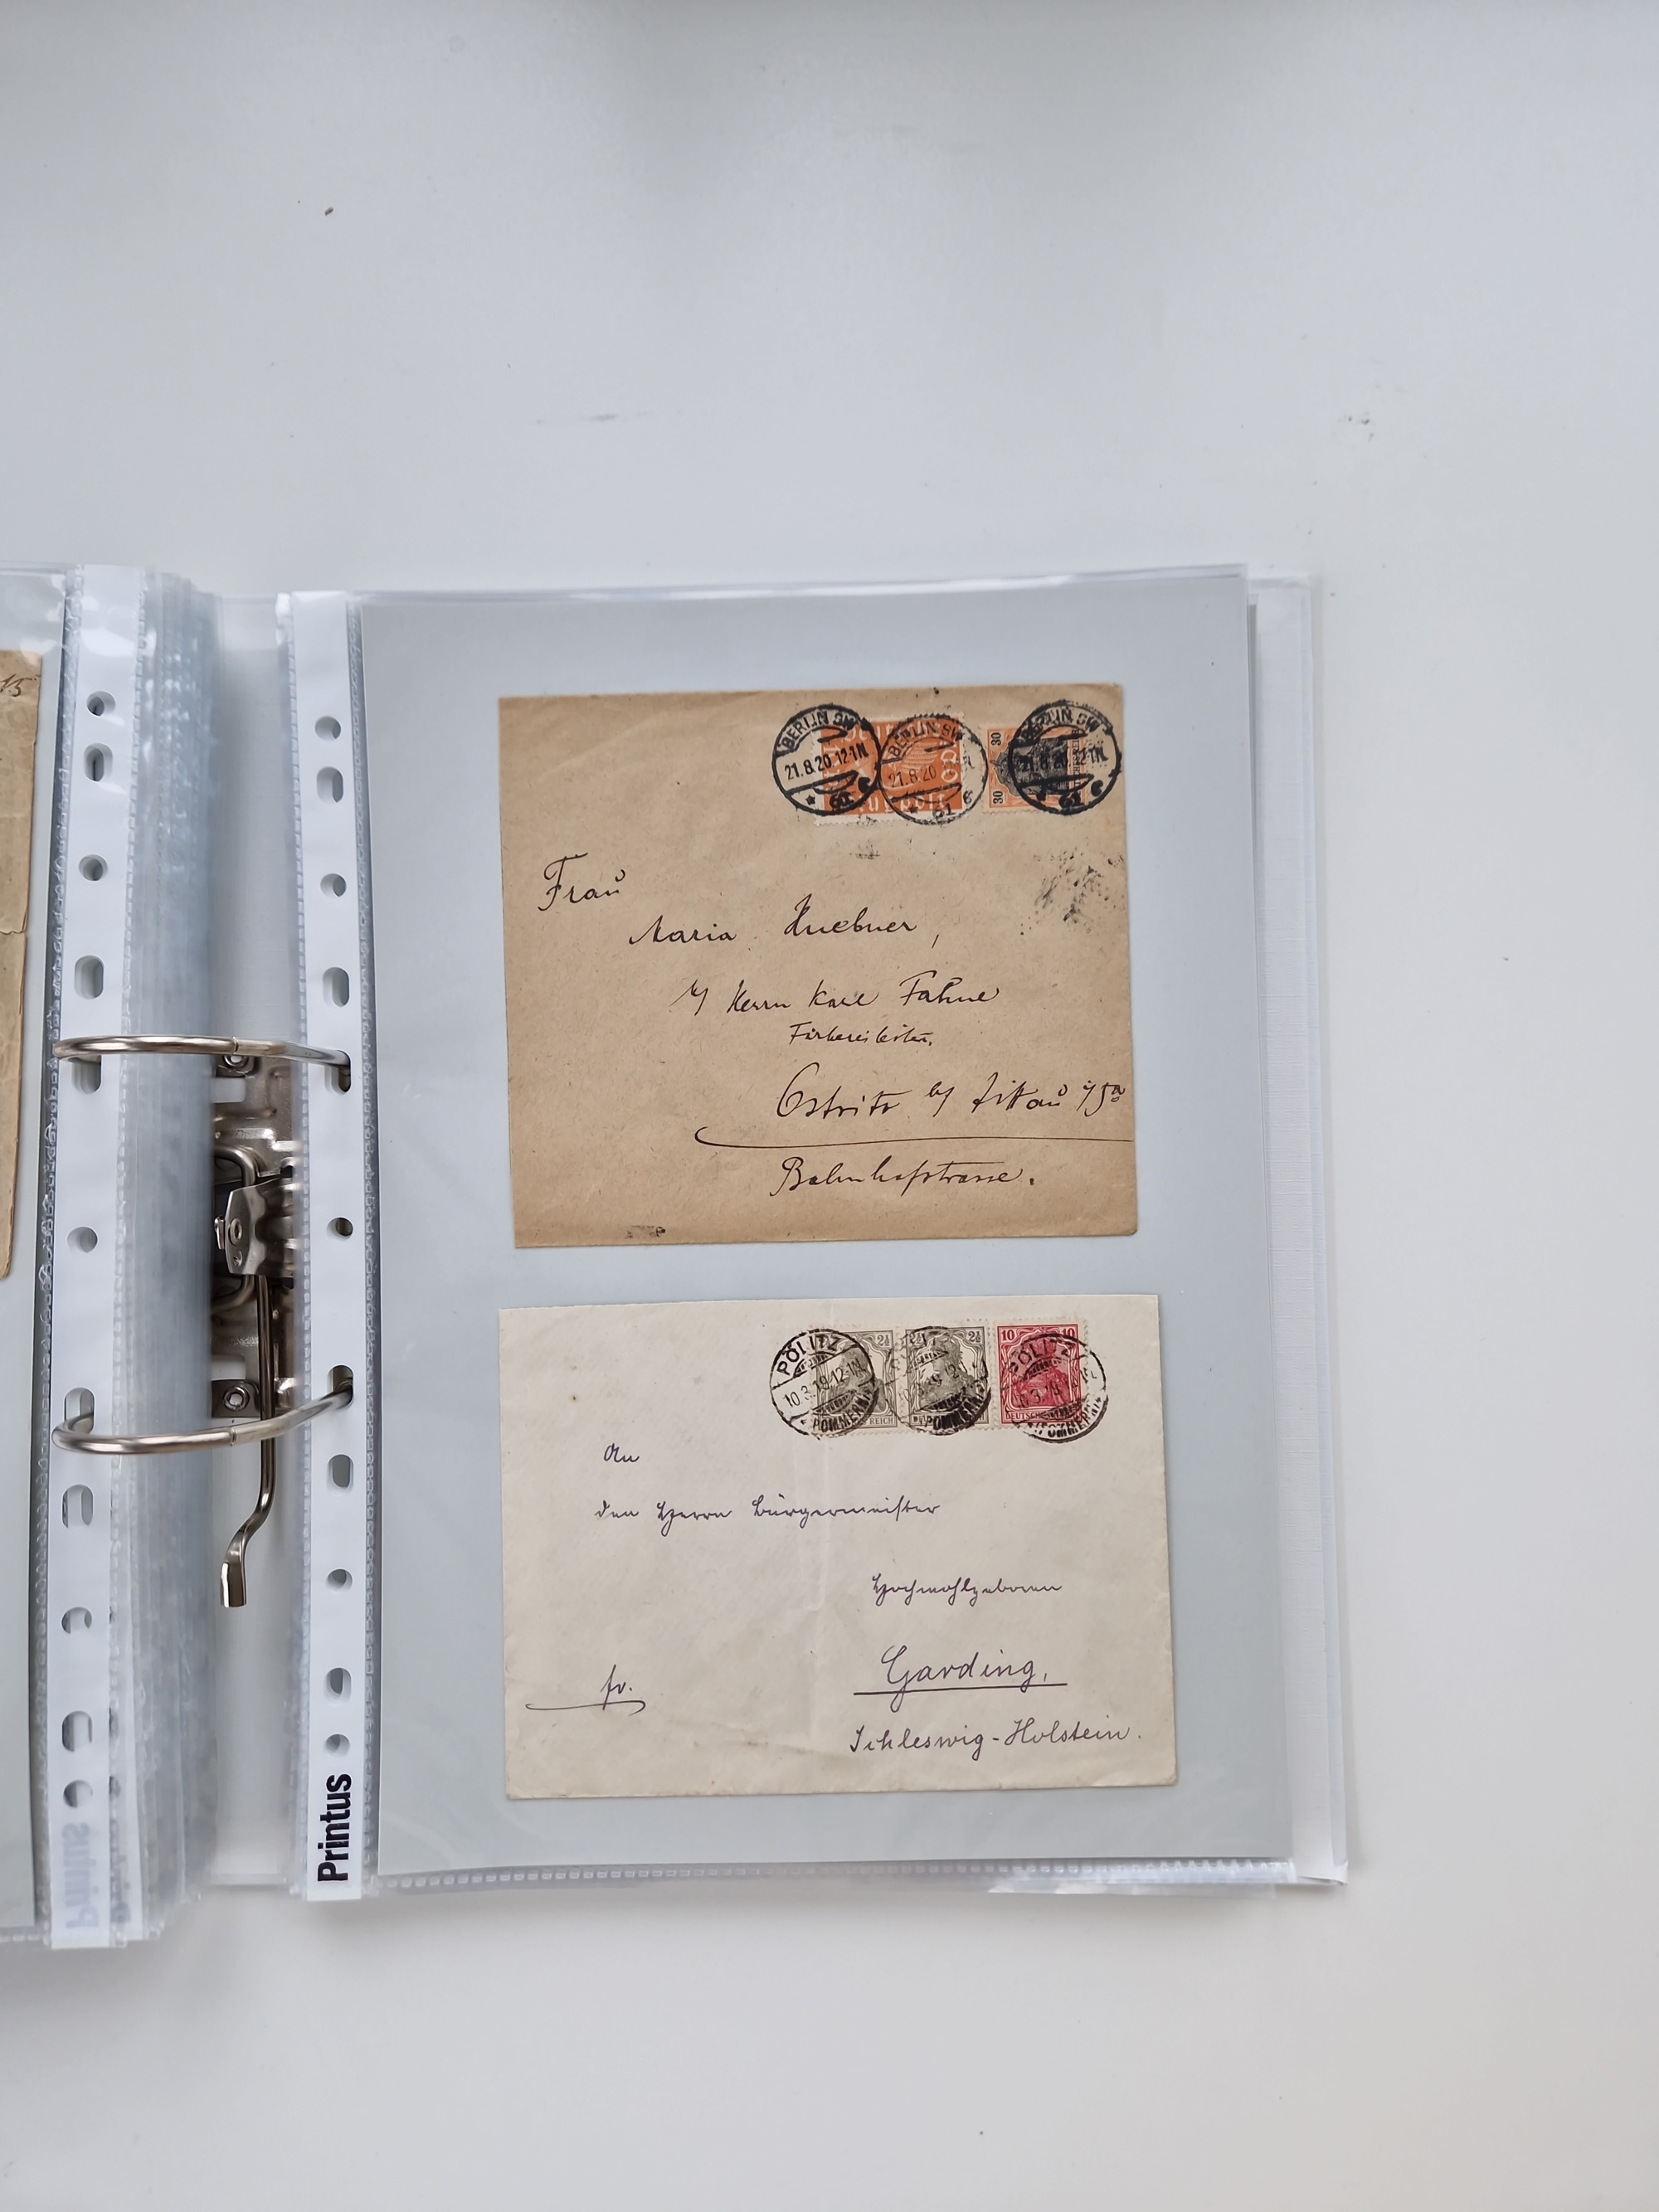 15
BERLIN SW
21.8.20.12-1N.
* 61 c
BERLIN SW
21.8.20
* 61 c
BERLIN SW
21.8.20.12-1N.
* 61 c
30
30
Frau
Maria Huebner,
b/ Herrn Karl Fähne
Ostritz b/ Zittau i/Sa
Bahnhofstrasse.
PÖLITZ
10.3.19.12-1N.
* (POMMERN)
2½
REICH
2½
(POMMERN)
10 10
DEUTSCHES
PÖLITZ
(POMMERN)
An
den Herrn Bürgermeister
Hochwohlgeboren
Garding,
fr.
Schleswig-Holstein.
Printus
Printus